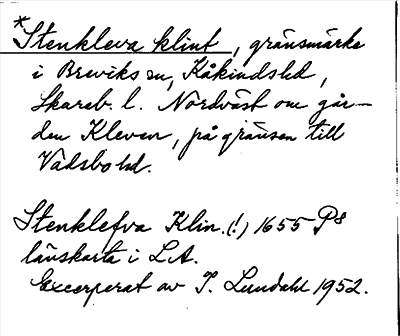 *Stenkleva klint, gränsmärke
i Breviks sn, Kåkinds hd,
Skarab. l. Nordväst om går-
den Kleven, på gränsen till
Vadsbo hd.
Stenklefva Klin. (!) 1655 P8
länskarta i L.A.
Excerperat av I. Lundahl 1952.